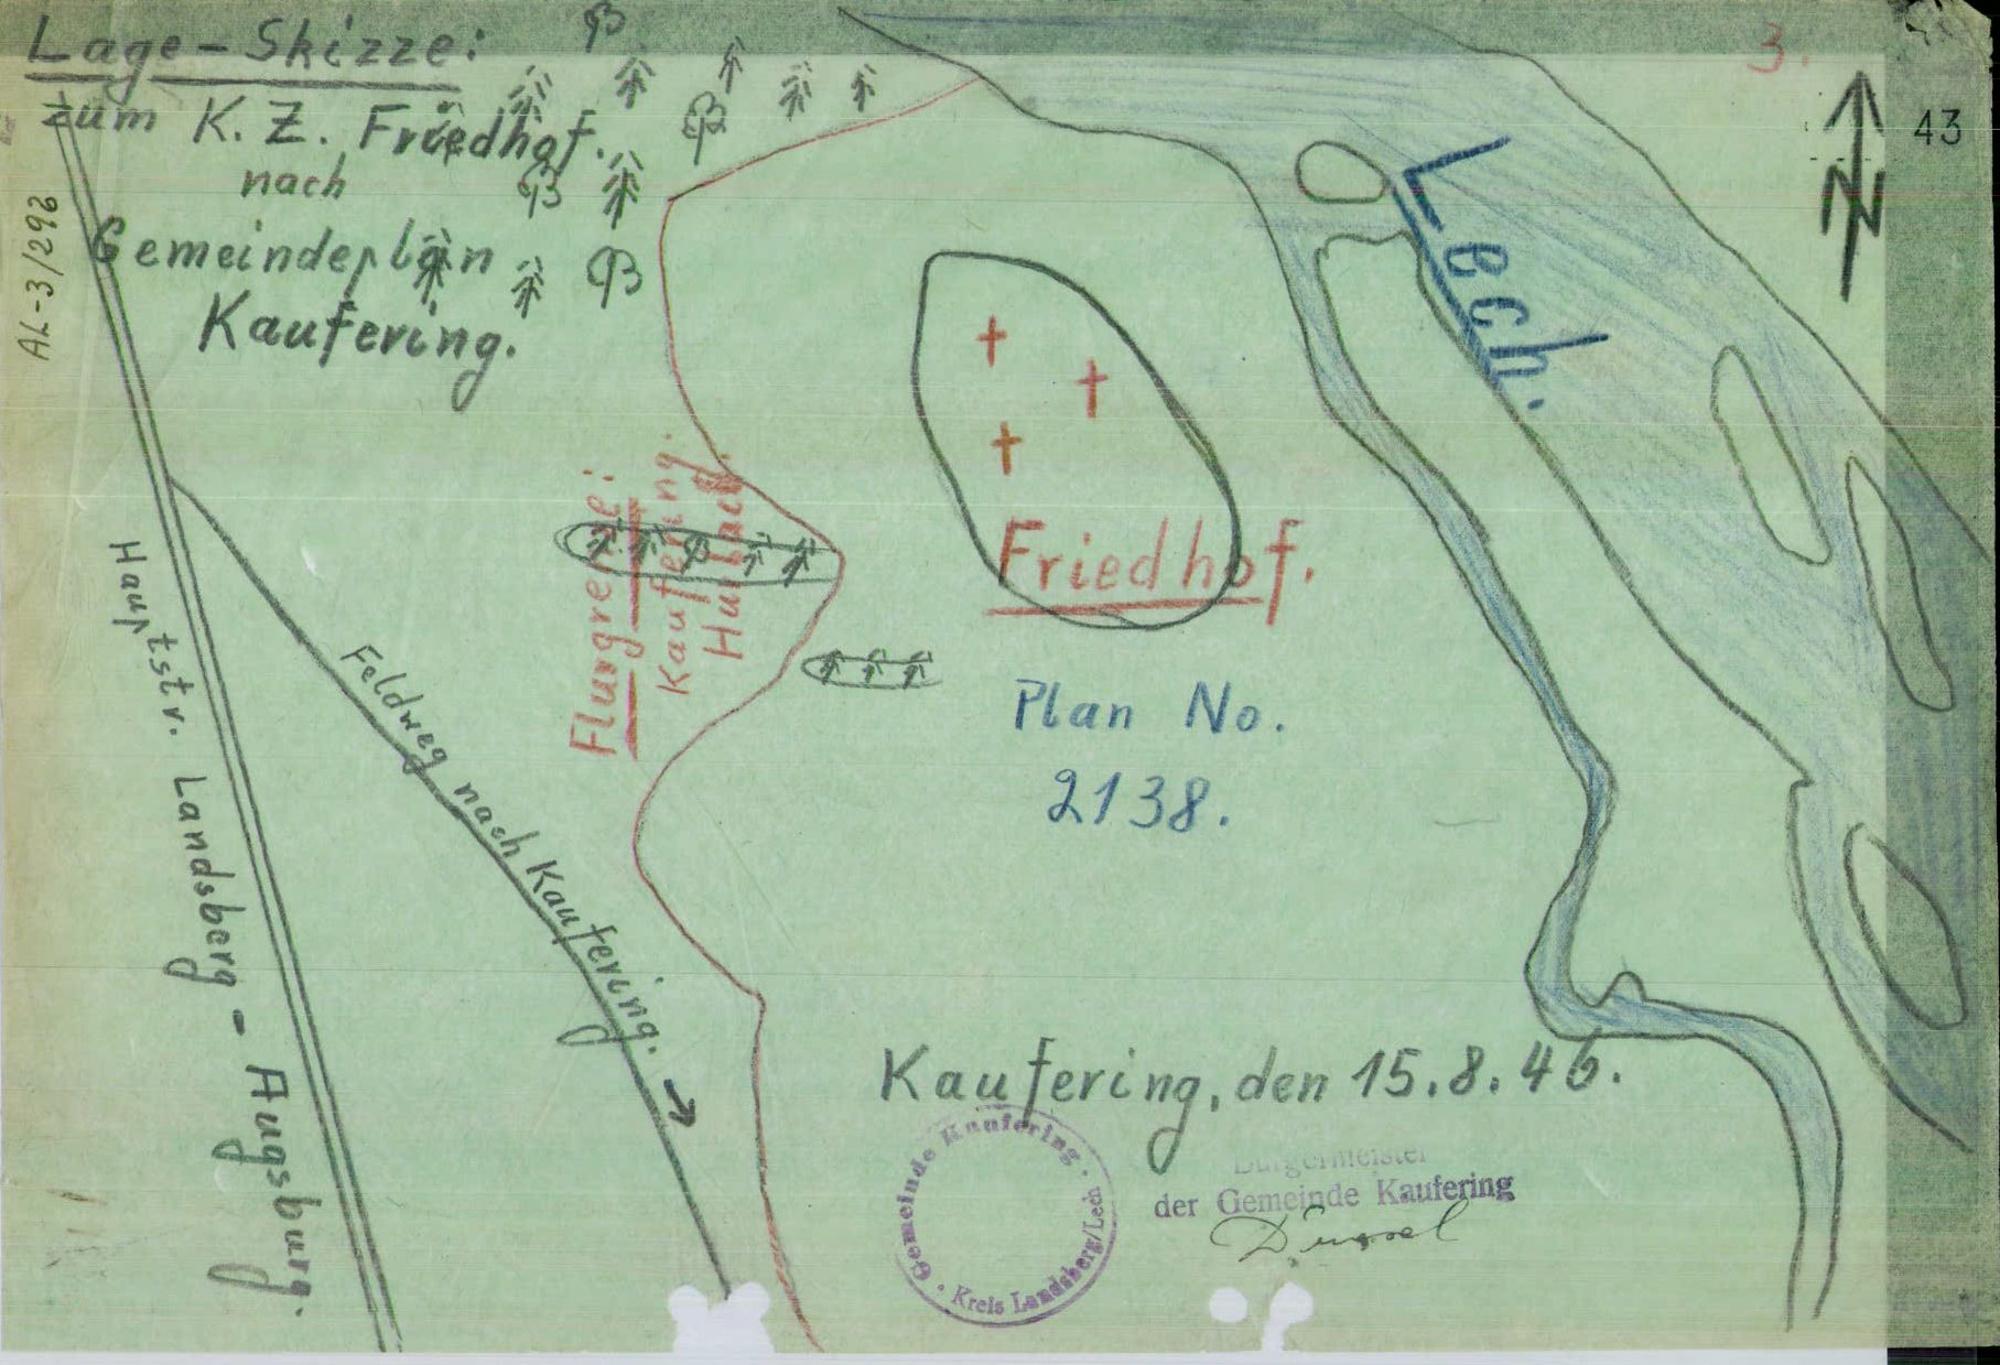 Lage-Skizze:
zum K. Z. Friedhof.
nach
Gemeindeplan
Kaufering.
3.
43
N
AL-3/292
Lech.
Flurgrenze:
Kaufering.
Friedhof.
Plan No.
2138.
Hauptstr. Landsberg - Augsburg.
Feldweg nach Kaufering.
Kaufering, den 15.8.46.
Gemeinde Kaufering · Kreis Landsberg/Lech ·
Bürgermeister
der Gemeinde Kaufering